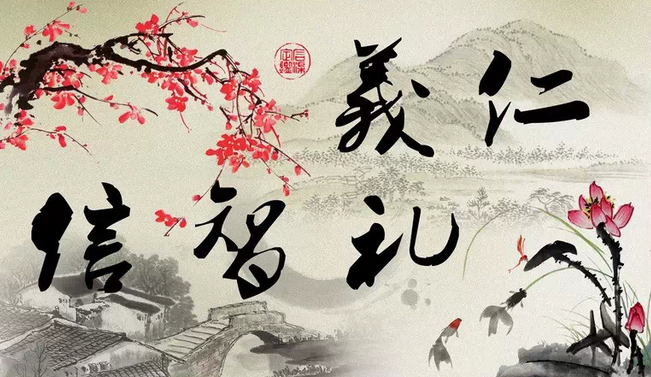 仁義
礼智信